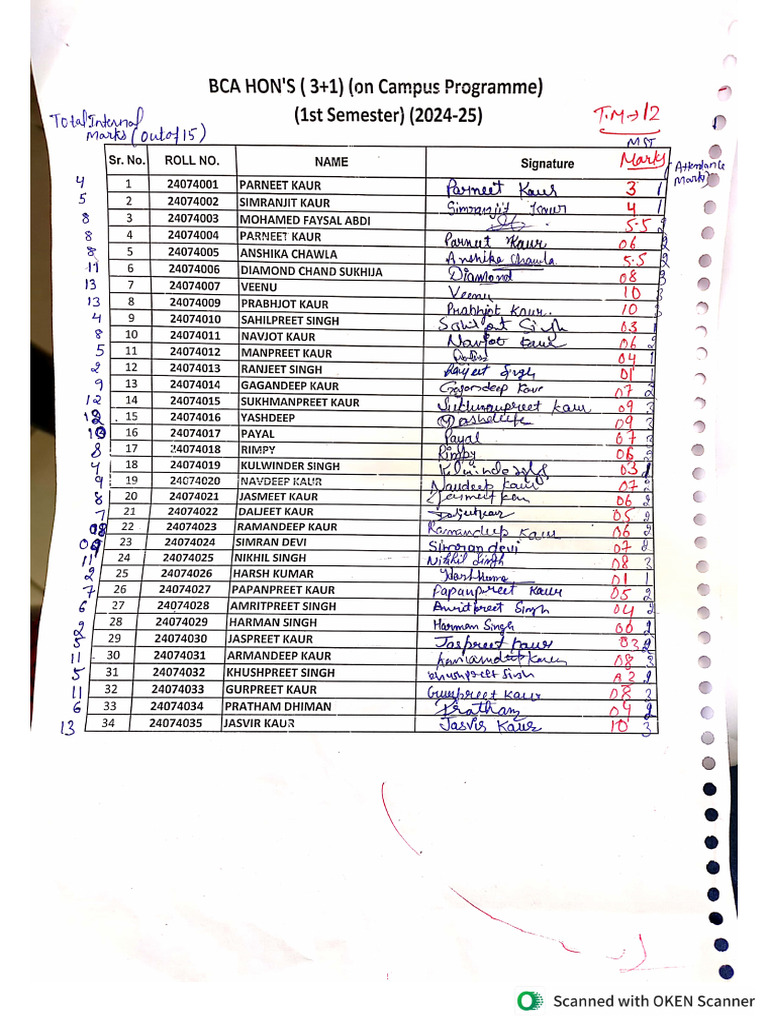 BCA HON'S ( 3+1) (on Campus Programme)
(1st Semester) (2024-25)
T.M → 12
Total Internal Marks (out of 15)
Sr. No. ROLL NO. NAME Signature MST Marks (Attendance Marks)
4 1 24074001 PARNEET KAUR Parneet Kaur 3 1
5 2 24074002 SIMRANJIT KAUR Simranjit Kaur 4 1
8 3 24074003 MOHAMED FAYSAL ABDI 5.5 2
8 4 24074004 PARNEET KAUR Parneet Kaur 06 2
8 5 24074005 ANSHIKA CHAWLA Anshika Chawla 5.5 2
11 6 24074006 DIAMOND CHAND SUKHIJA Diamond 08 3
13 7 24074007 VEENU Veenu 10 3
13 8 24074009 PRABHJOT KAUR Prabhjot Kaur. 10 3
4 9 24074010 SAHILPREET SINGH Sahilpreet Singh 03 1
8 10 24074011 NAVJOT KAUR Navjot Kaur 06 2
5 11 24074012 MANPREET KAUR 04 1
2 12 24074013 RANJEET SINGH Ranjeet Singh 01 1
9 13 24074014 GAGANDEEP KAUR Gagandeep Kaur 07 2
12 14 24074015 SUKHMANPREET KAUR Sukhmanpreet Kaur 09 3
12 15 24074016 YASHDEEP Yashdeep 09 3
10 16 24074017 PAYAL Payal 07 3
8 17 24074018 RIMPY Rimpy 06 2
4 18 24074019 KULWINDER SINGH Kulwinder Singh 03 1
9 19 24074020 NAVDEEP KAUR Navdeep Kaur 07 2
8 20 24074021 JASMEET KAUR Jasmeet Kaur 06 2
7 21 24074022 DALJEET KAUR Daljeet Kaur 05 2
08 22 24074023 RAMANDEEP KAUR Ramandeep Kaur 06 2
09 23 24074024 SIMRAN DEVI Simran devi 07 2
11 24 24074025 NIKHIL SINGH Nikhil Singh 08 3
2 25 24074026 HARSH KUMAR Harsh Kumar 01 1
7 26 24074027 PAPANPREET KAUR Papanpreet Kaur 05 2
6 27 24074028 AMRITPREET SINGH Amritpreet Singh 04 2
2 28 24074029 HARMAN SINGH Harman Singh 00 2
5 29 24074030 JASPREET KAUR Jaspreet Kaur 03 2
11 30 24074031 ARMANDEEP KAUR Armandeep Kaur 08 3
5 31 24074032 KHUSHPREET SINGH Khushpreet Singh 03 2
11 32 24074033 GURPREET KAUR Gurpreet Kaur 08 3
6 33 24074034 PRATHAM DHIMAN Pratham 04 2
13 34 24074035 JASVIR KAUR Jasvir Kaur 10 3
Scanned with OKEN Scanner